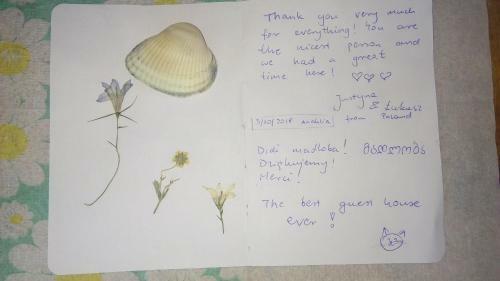 Thank you very much
for everything! You are
the nicest person and
we had a great
time here! ♡♡♡
Justyna
& Łukasz
from Poland
Didi madloba! მადლობა
Dziękujemy!
Merci!
The best guest house
ever!